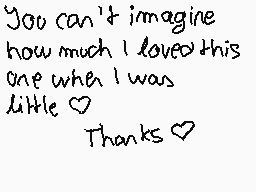 You can't imagine
how much I loved this
one when I was
little ♡
Thanks ♡